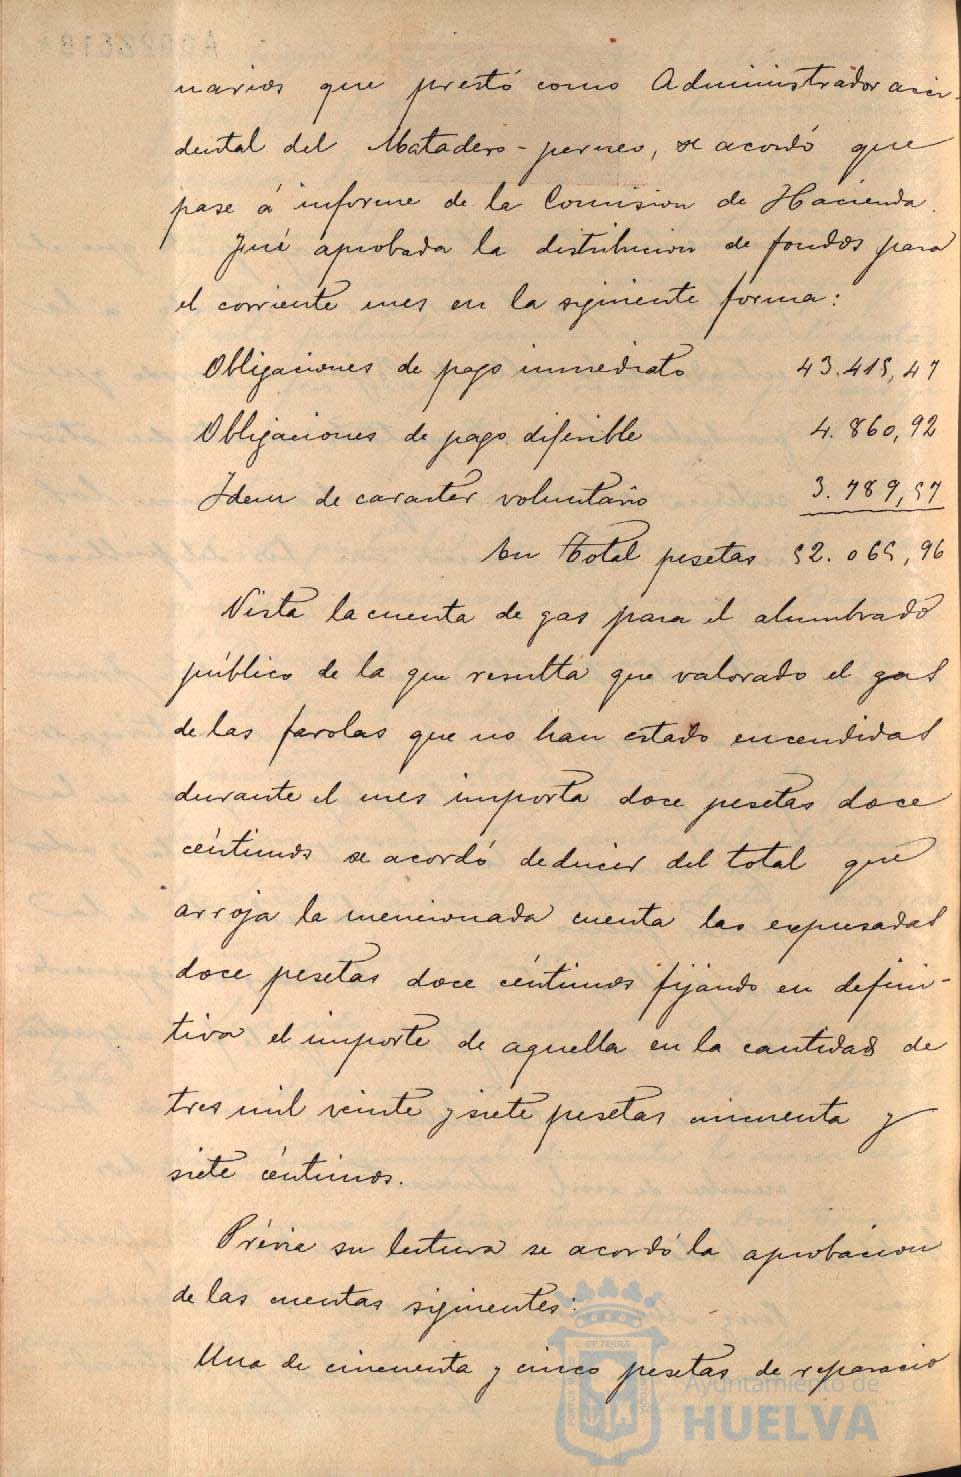 narios que prestó como Administrador acci-
dental del Matadero-perneo, se acordó que
pase á informe de la Comision de Hacienda.
Fué aprobada la distribucion de fondos para
el corriente mes en la siguiente forma:
Obligaciones de pago inmediato 43.415,47
Obligaciones de pago diferible 4.860,92
Idem de caracter voluntario 3.789,57
En Total pesetas 52.065,96
Vista la cuenta de gas para el alumbrado
público de la que resulta que valorado el gas
de las farolas que no han estado encendidas
durante el mes importa doce pesetas doce
céntimos se acordó deducir del total que
arroja la mencionada cuenta las expresadas
doce pesetas doce céntimos fijando en defini-
tiva el importe de aquella en la cantidad de
tres mil veinte y siete pesetas cincuenta y
siete céntimos.
Prévia su lectura se acordó la aprobacion
de las cuentas siguientes:
Una de cincuenta y cinco pesetas de reparacio
Ayuntamiento de
HUELVA